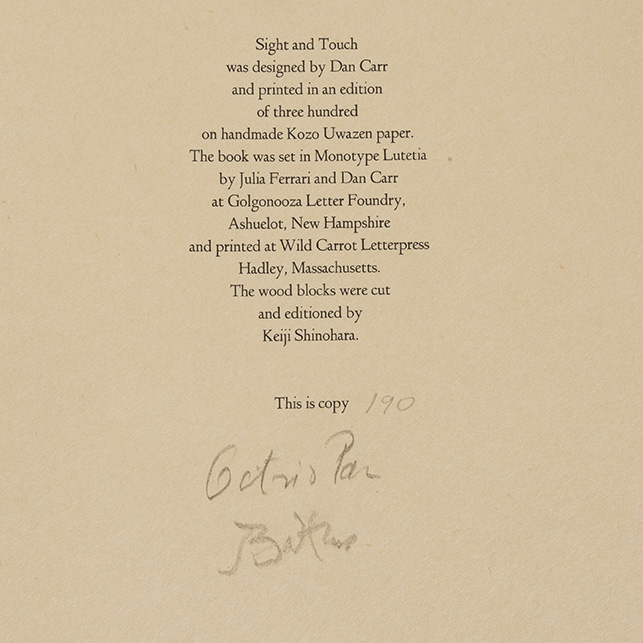 Sight and Touch
was designed by Dan Carr
and printed in an edition
of three hundred
on handmade Kozo Uwazen paper.
The book was set in Monotype Lutetia
by Julia Ferrari and Dan Carr
at Golgonooza Letter Foundry,
Ashuelot, New Hampshire
and printed at Wild Carrot Letterpress
Hadley, Massachusetts.
The wood blocks were cut
and editioned by
Keiji Shinohara.
This is copy 190
Octavio Paz
Balthus